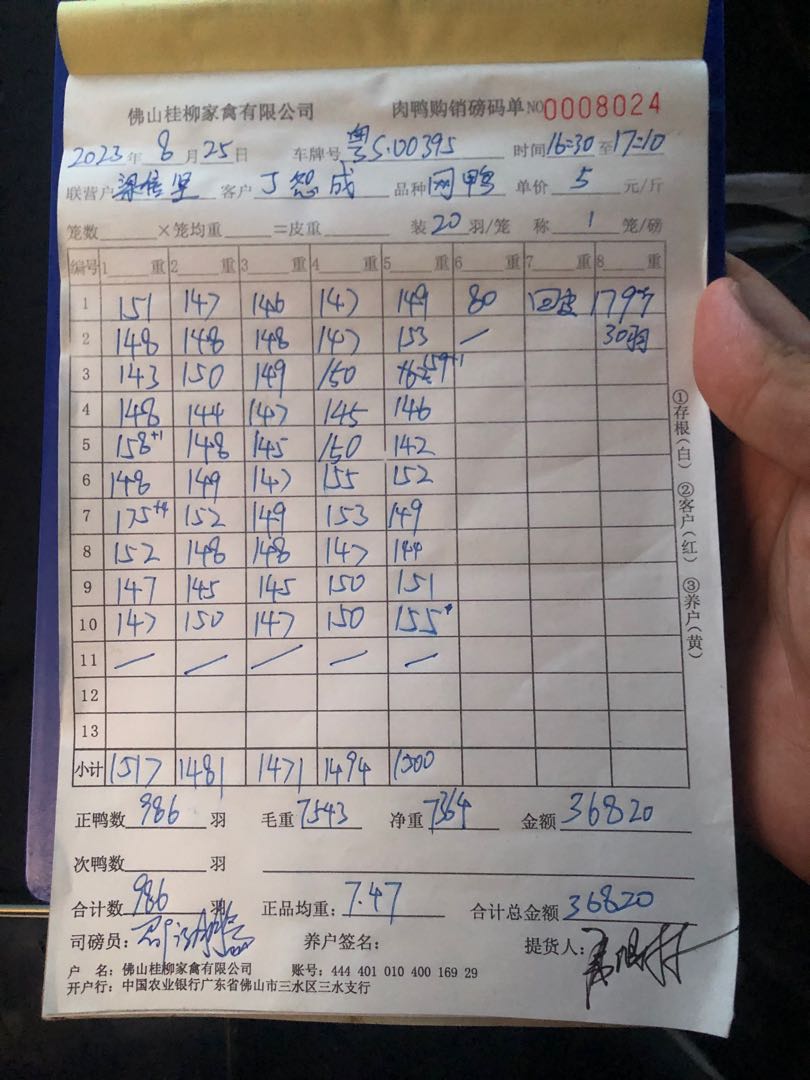 佛山桂柳家禽有限公司 肉鸭购销磅码单 NO 0008024
2023年 8月25日 车牌号 粤S·00395 时间 16:30 至 17:10
联营户 客户 丁 成 品种 网鸭 单价 5 元/斤
笼数 ×笼均重 =皮重 装 20 羽/笼 称 1 笼/磅
编号 1 重 2 重 3 重 4 重 5 重 6 重 7 重 8 重
1 151 147 146 147 149 80 回皮 179
2 148 148 148 147 153 / 30羽
3 143 150 149 150 159+1
4 148 144 147 145 146
5 158+1 148 145 150 142
6 148 149 147 155 152
7 175+4 152 149 153 149
8 152 148 148 147 144
9 147 145 145 150 151
10 147 150 147 150 155
11 / / / / /
12
13
小计 1517 1481 1471 1494 1500
正鸭数 986 羽 毛重 7543 净重 7364 金额 36820
次鸭数 羽
合计数 986 羽 正品均重: 7.47 合计总金额 36820
司磅员: 养户签名: 提货人:
户 名: 佛山桂柳家禽有限公司 账号: 444 401 010 400 169 29
开户行: 中国农业银行广东省佛山市三水区三水支行
①存根(白) ②客户(红) ③养户(黄)